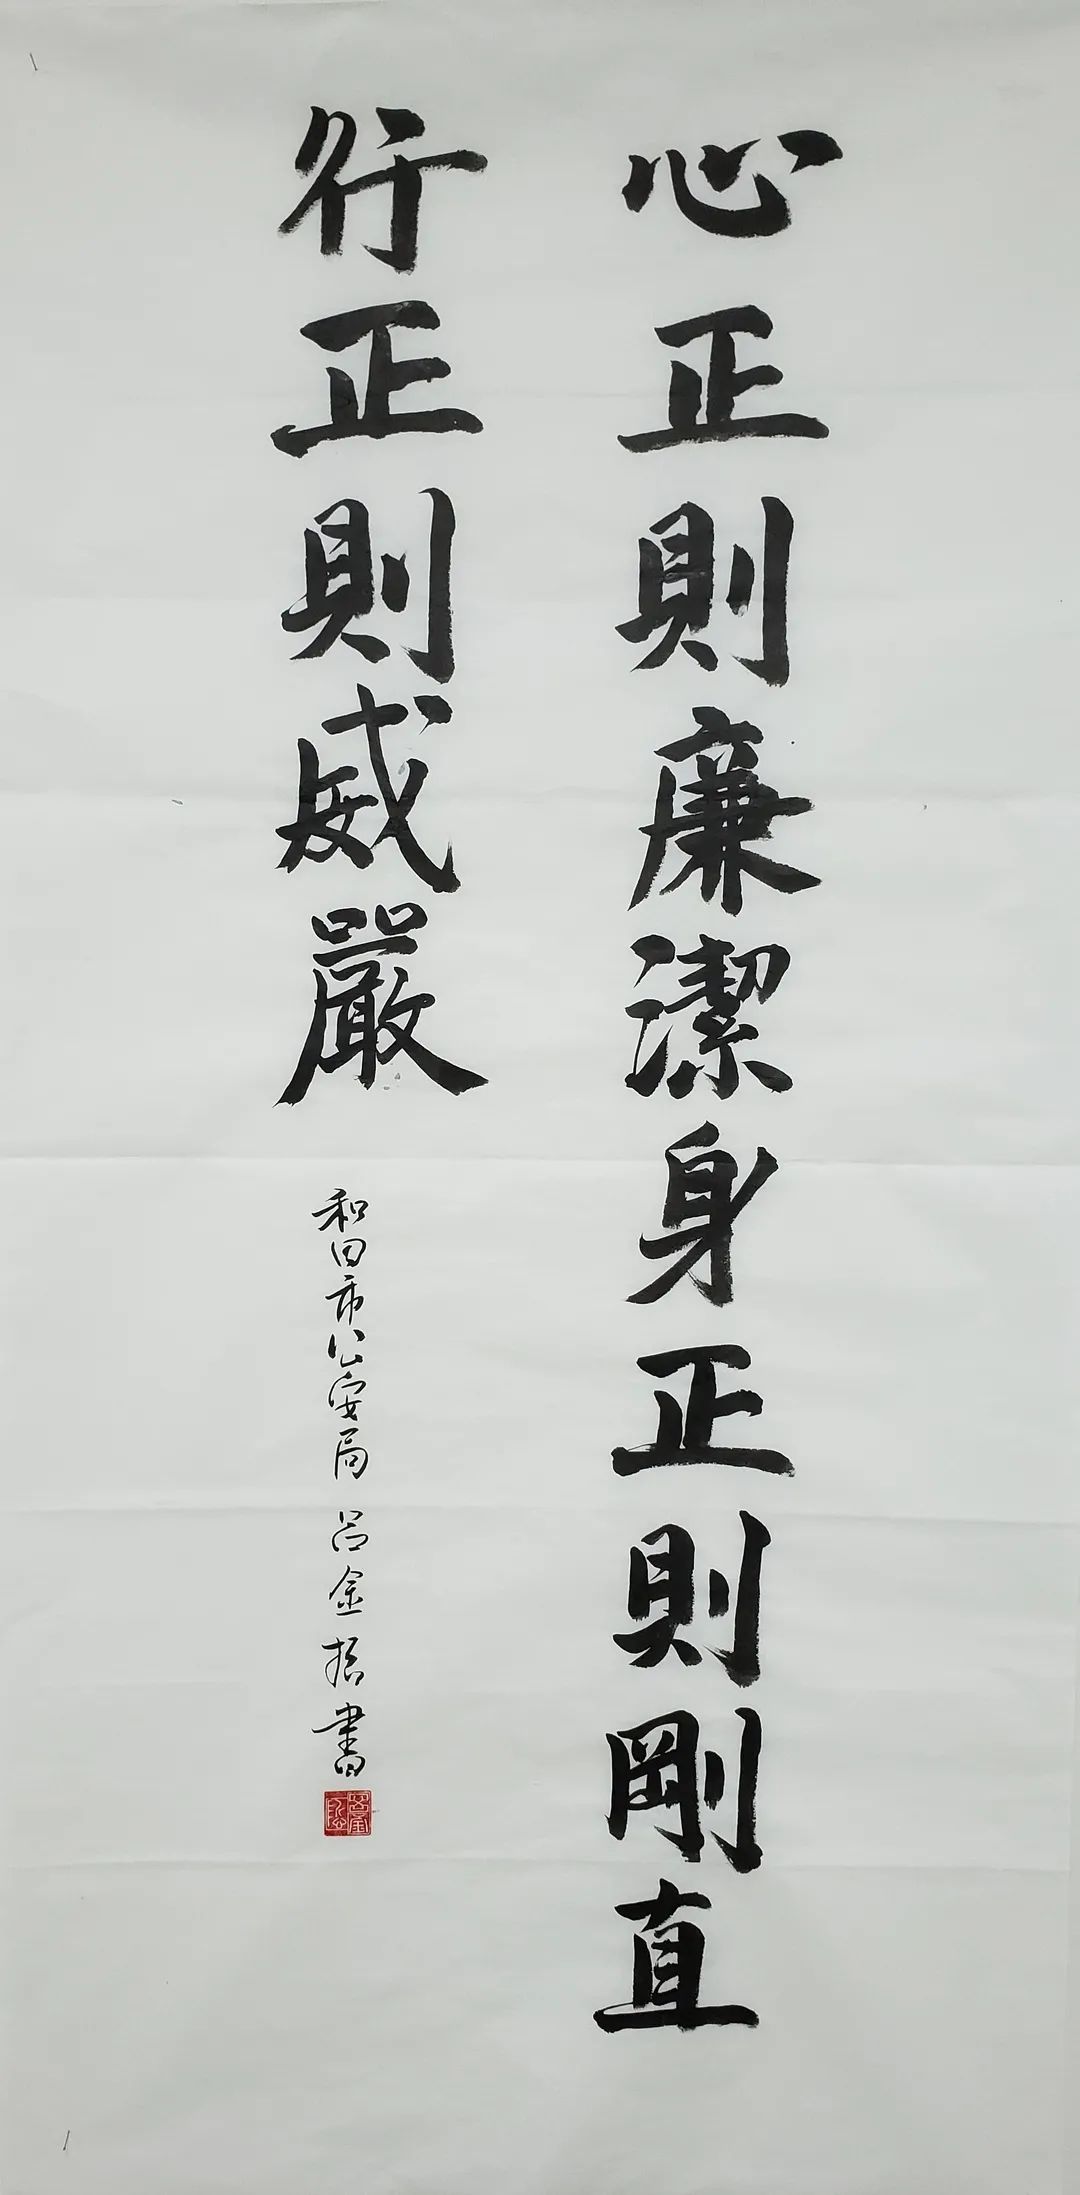 心正則廉潔身正則剛直
行正則威嚴
和田市公安局 呂金振書